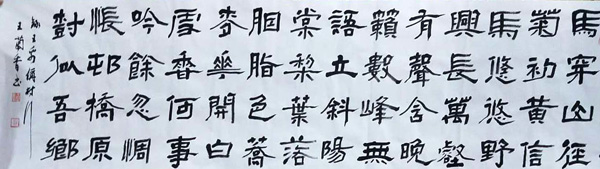 馬穿山徑
菊初黃信
馬悠悠野
興長萬壑
有聲含晚
籟數峰無
語立斜陽
棠梨葉落
胭脂色蕎
麥華開白
雪香何事
吟餘忽惆
悵邨橋原
對似吾鄉
王禹偁村行
王蘭香書